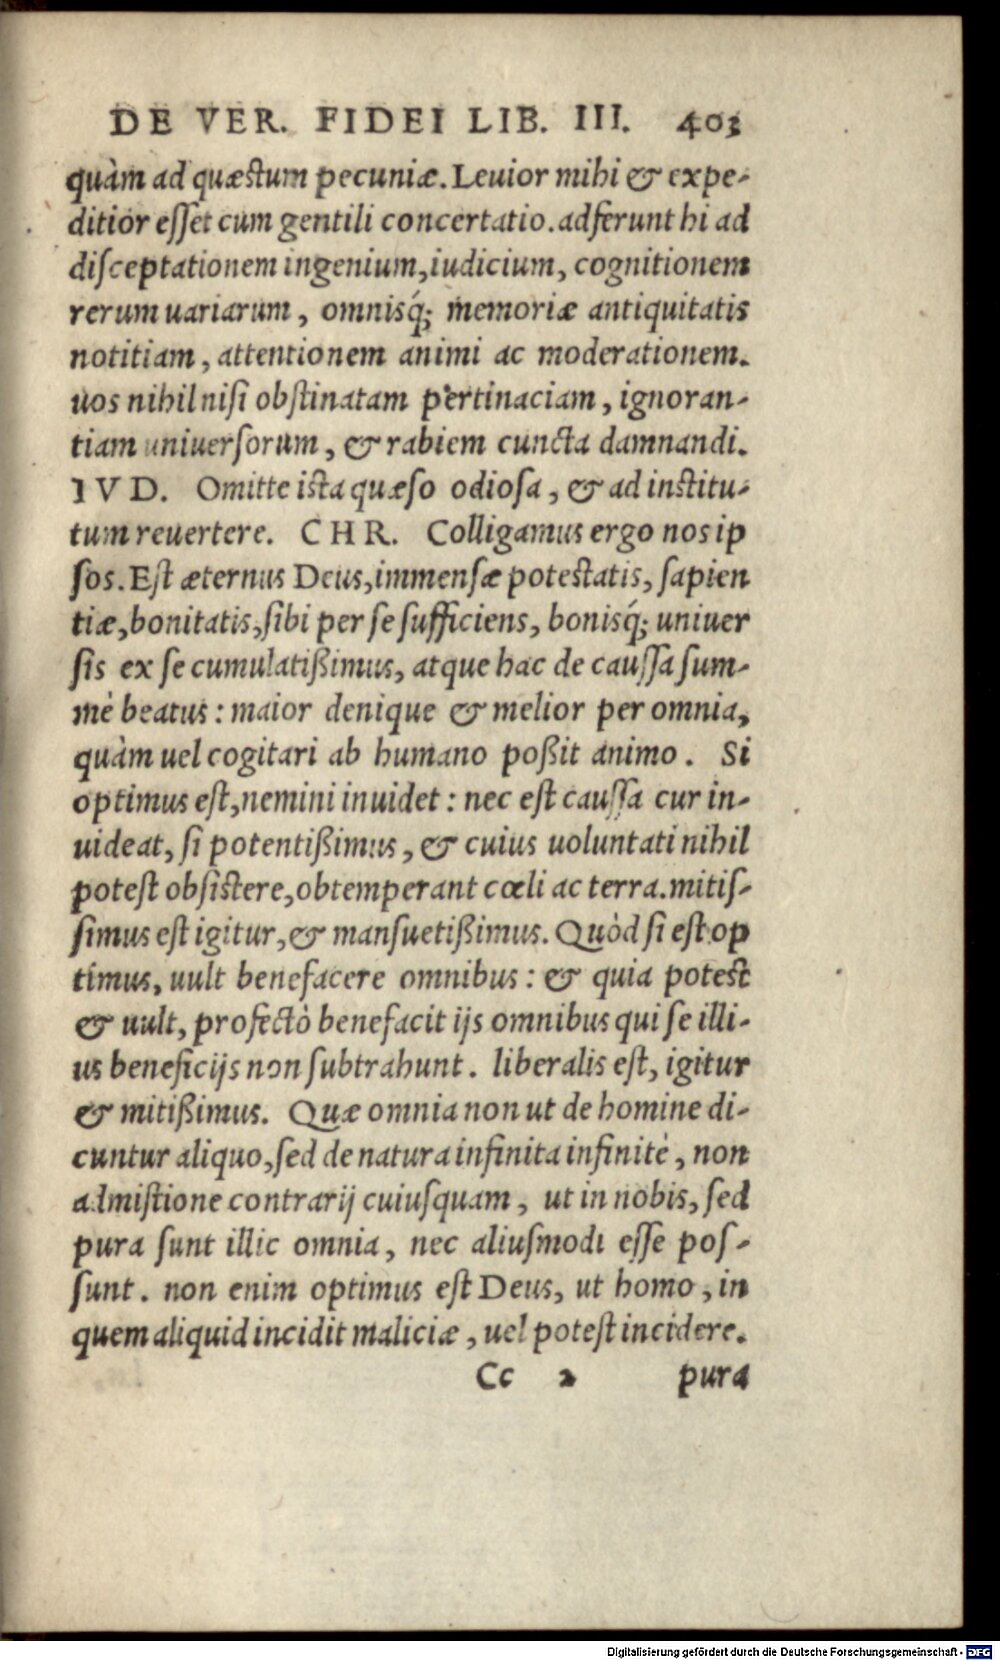 DE VER. FIDEI LIB. III. 403
quàm ad quæstum pecuniæ. Leuior mihi & expe-
ditior esset cum gentili concertatio. adferunt hi ad
disceptationem ingenium, iudicium, cognitionem
rerum uariarum, omnisq́; memoriæ antiquitatis
notitiam, attentionem animi ac moderationem.
uos nihil nisi obstinatam pertinaciam, ignoran-
tiam uniuersorum, & rabiem cuncta damnandi.
IVD. Omitte ista quæso odiosa, & ad institu-
tum reuertere. CHR. Colligamus ergo nos ip
sos. Est æternus Deus, immensæ potestatis, sapien
tiæ, bonitatis, sibi per se sufficiens, bonisq́; uniuer
sis ex se cumulatißimus, atque hac de caussa sum-
mè beatus: maior denique & melior per omnia,
quàm uel cogitari ab humano poßit animo. Si
optimus est, nemini inuidet: nec est caussa cur in-
uideat, si potentißimus, & cuius uoluntati nihil
potest obsistere, obtemperant cœli ac terra. mitis-
simus est igitur, & mansuetißimus. Quòd si est op
timus, uult benefacere omnibus: & quia potest
& uult, profectò benefacit ijs omnibus qui se illi-
us beneficijs non subtrahunt. liberalis est, igitur
& mitißimus. Quæ omnia non ut de homine di-
cuntur aliquo, sed de natura infinita infinitè, non
admistione contrarij cuiusquam, ut in nobis, sed
pura sunt illic omnia, nec aliusmodi esse pos-
sunt. non enim optimus est Deus, ut homo, in
quem aliquid incidit maliciæ, uel potest incidere.
Cc 2 pura
Digitalisierung gefördert durch die Deutsche Forschungsgemeinschaft - DFG